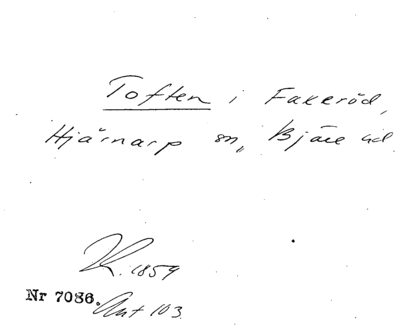 Toften i Fakeröd,
Hjärnarp sn, Bjäre hd
K. 1859
Nr 7086. Ant 103